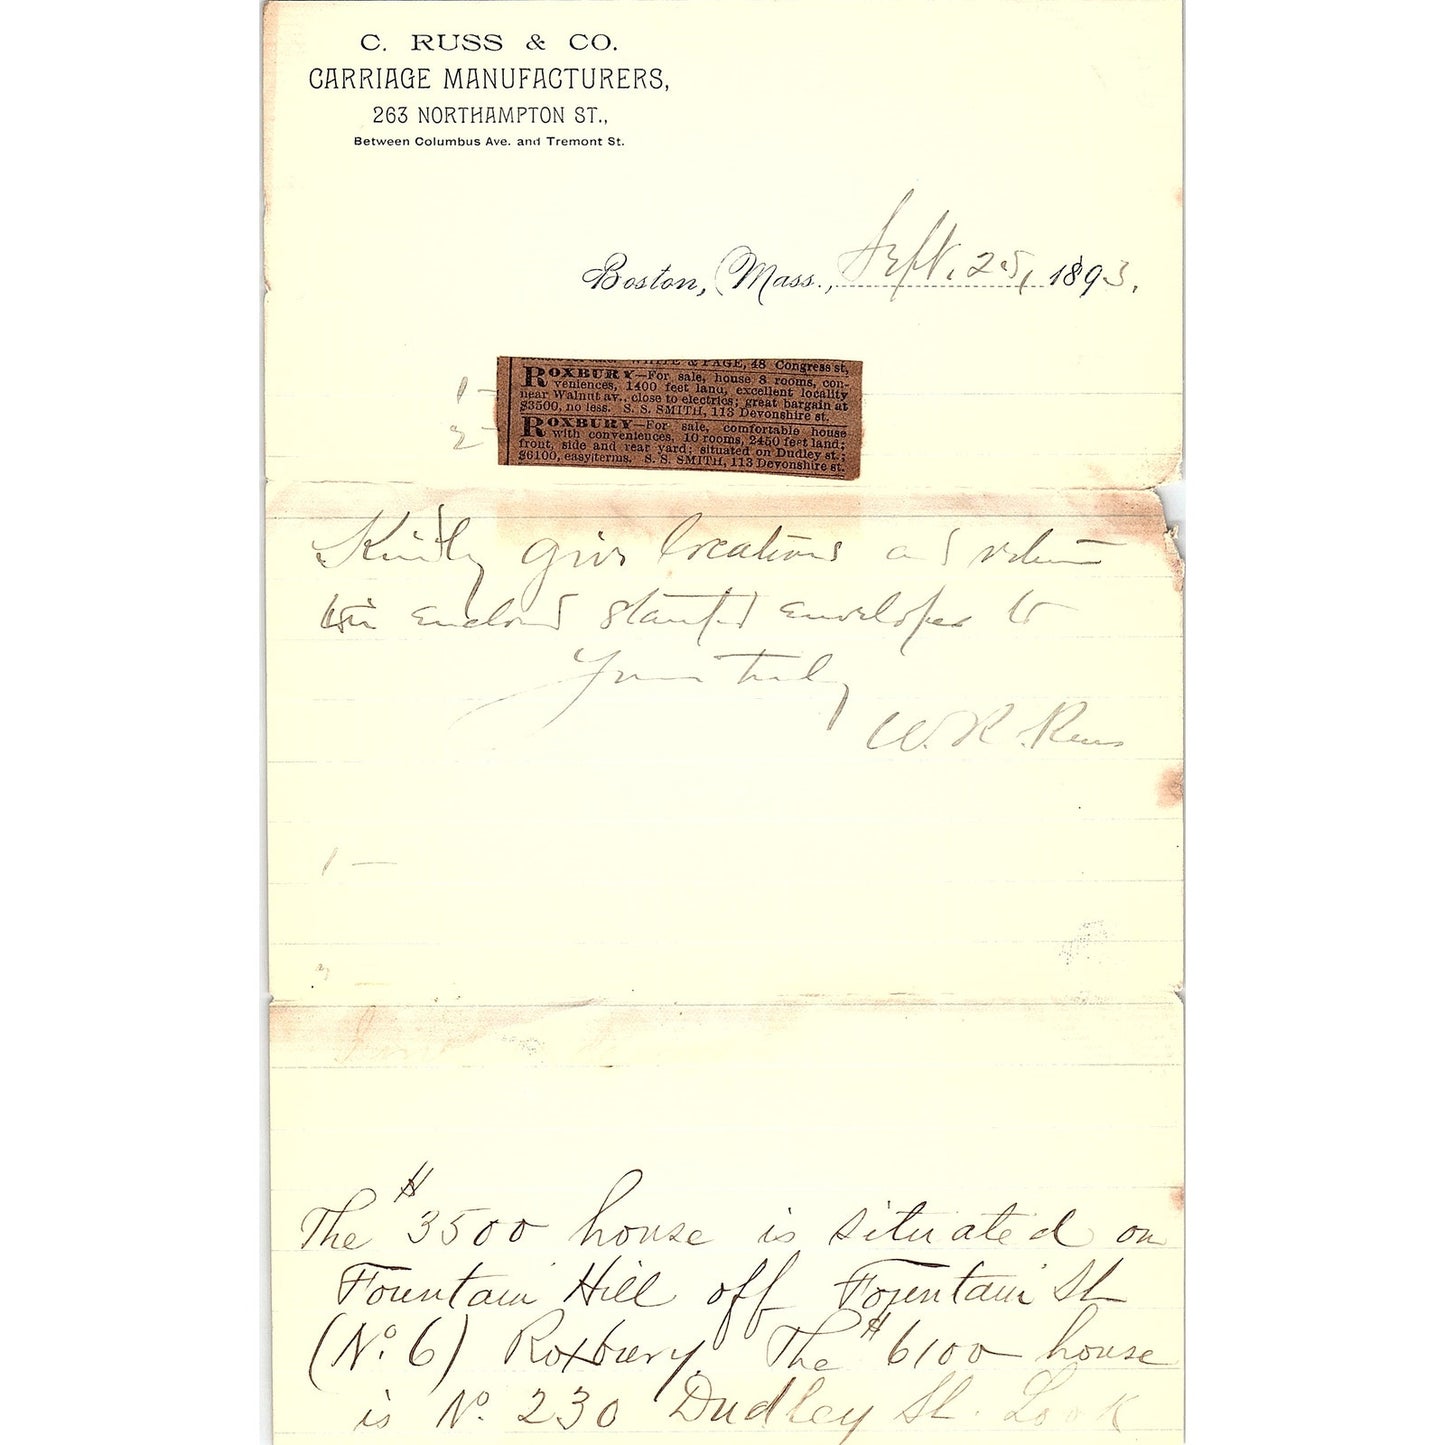 C. RUSS & CO.
CARRIAGE MANUFACTURERS,
263 NORTHAMPTON ST.,
Between Columbus Ave. and Tremont St.
Boston, Mass., Sept. 25, 1893.
WHITE & PAGE, 48 Congress st,
1 -
ROXBURY—For sale, house 8 rooms, con-
veniences, 1400 feet land, excellent locality
near Walnut av., close to electrics; great bargain at
$3500, no less. S. S. SMITH, 113 Devonshire st.
2 -
ROXBURY—For sale, comfortable house
with conveniences, 10 rooms, 2450 feet land;
front, side and rear yard; situated on Dudley st.;
$6100, easy terms. S. S. SMITH, 113 Devonshire st.
Kindly give locations and return
in enclosed stamped envelope to
Yours truly
W. R.
1 —
The $3500 house is situated on
Fountain Hill off Fountain St
(No. 6) Roxbury. The $6100 house
is No. 230 Dudley St. Look